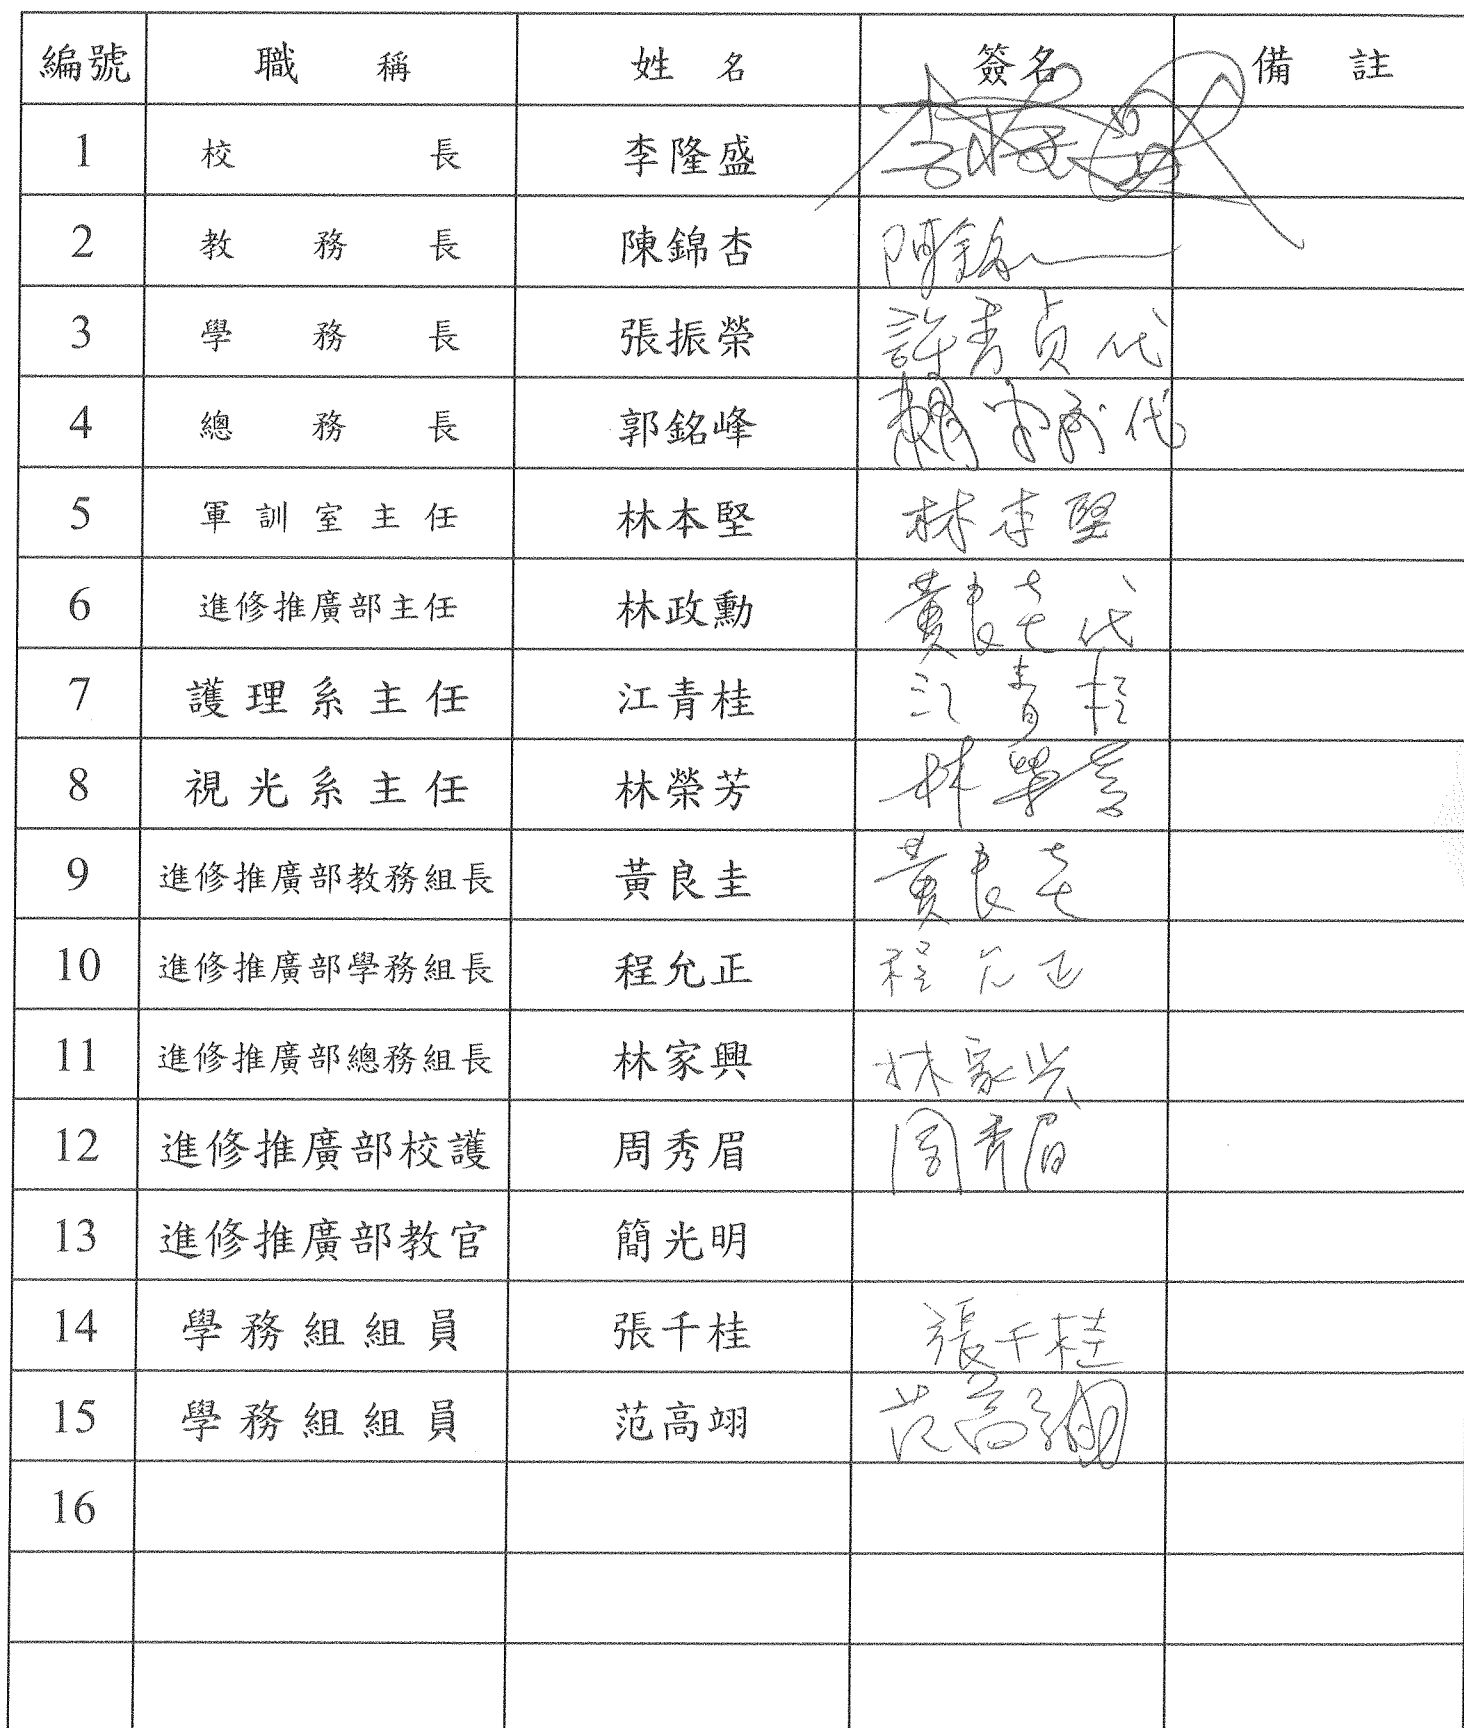 編號 職稱 姓名 簽名 備註
1 校長 李隆盛
2 教務長 陳錦杏 陳錦
3 學務長 張振榮 許青貞代
4 總務長 郭銘峰 代
5 軍訓室主任 林本堅 林本堅
6 進修推廣部主任 林政勳 黃良圭代
7 護理系主任 江青桂 江青桂
8 視光系主任 林榮芳 林榮芳
9 進修推廣部教務組長 黃良圭 黃良圭
10 進修推廣部學務組長 程允正 程允正
11 進修推廣部總務組長 林家興 林家兴
12 進修推廣部校護 周秀眉 周秀眉
13 進修推廣部教官 簡光明
14 學務組組員 張千桂 張千桂
15 學務組組員 范高翊 范高翊
16